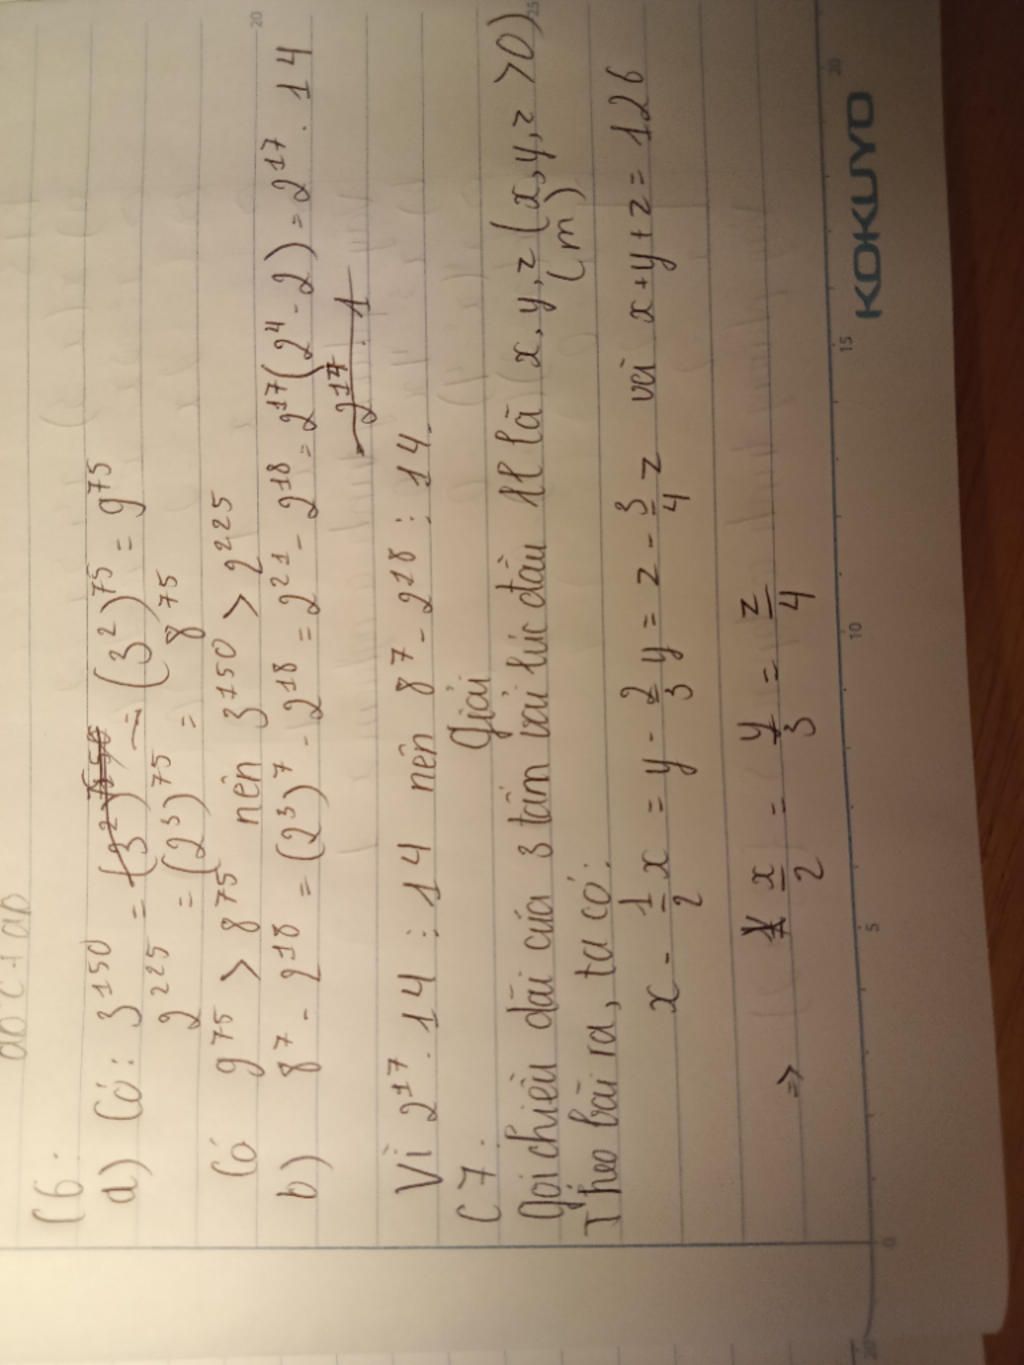 C6:
a) Có: 3^150 = (3^2)^75 = 9^75
2^225 = (2^3)^75 = 8^75
Có 9^75 > 8^75 nên 3^150 > 2^225
b) 8^7 - 2^18 = (2^3)^7 - 2^18 = 2^21 - 2^18 = 2^17(2^4 - 2) = 2^17 . 14
2^17 . 1
Vì 2^17 . 14 ⋮ 14 nên 8^7 - 2^18 ⋮ 14.
C7. Giải
Gọi chiều dài của 3 tấm vải lúc đầu là x, y, z (x, y, z > 0)
(m)
Theo bài ra, ta có:
x - 1/2 x = y - 2/3 y = z - 3/4 z và x + y + z = 126
=> x/2 = y/3 = z/4
KOKUYO
0 5 10 15 20
20 25